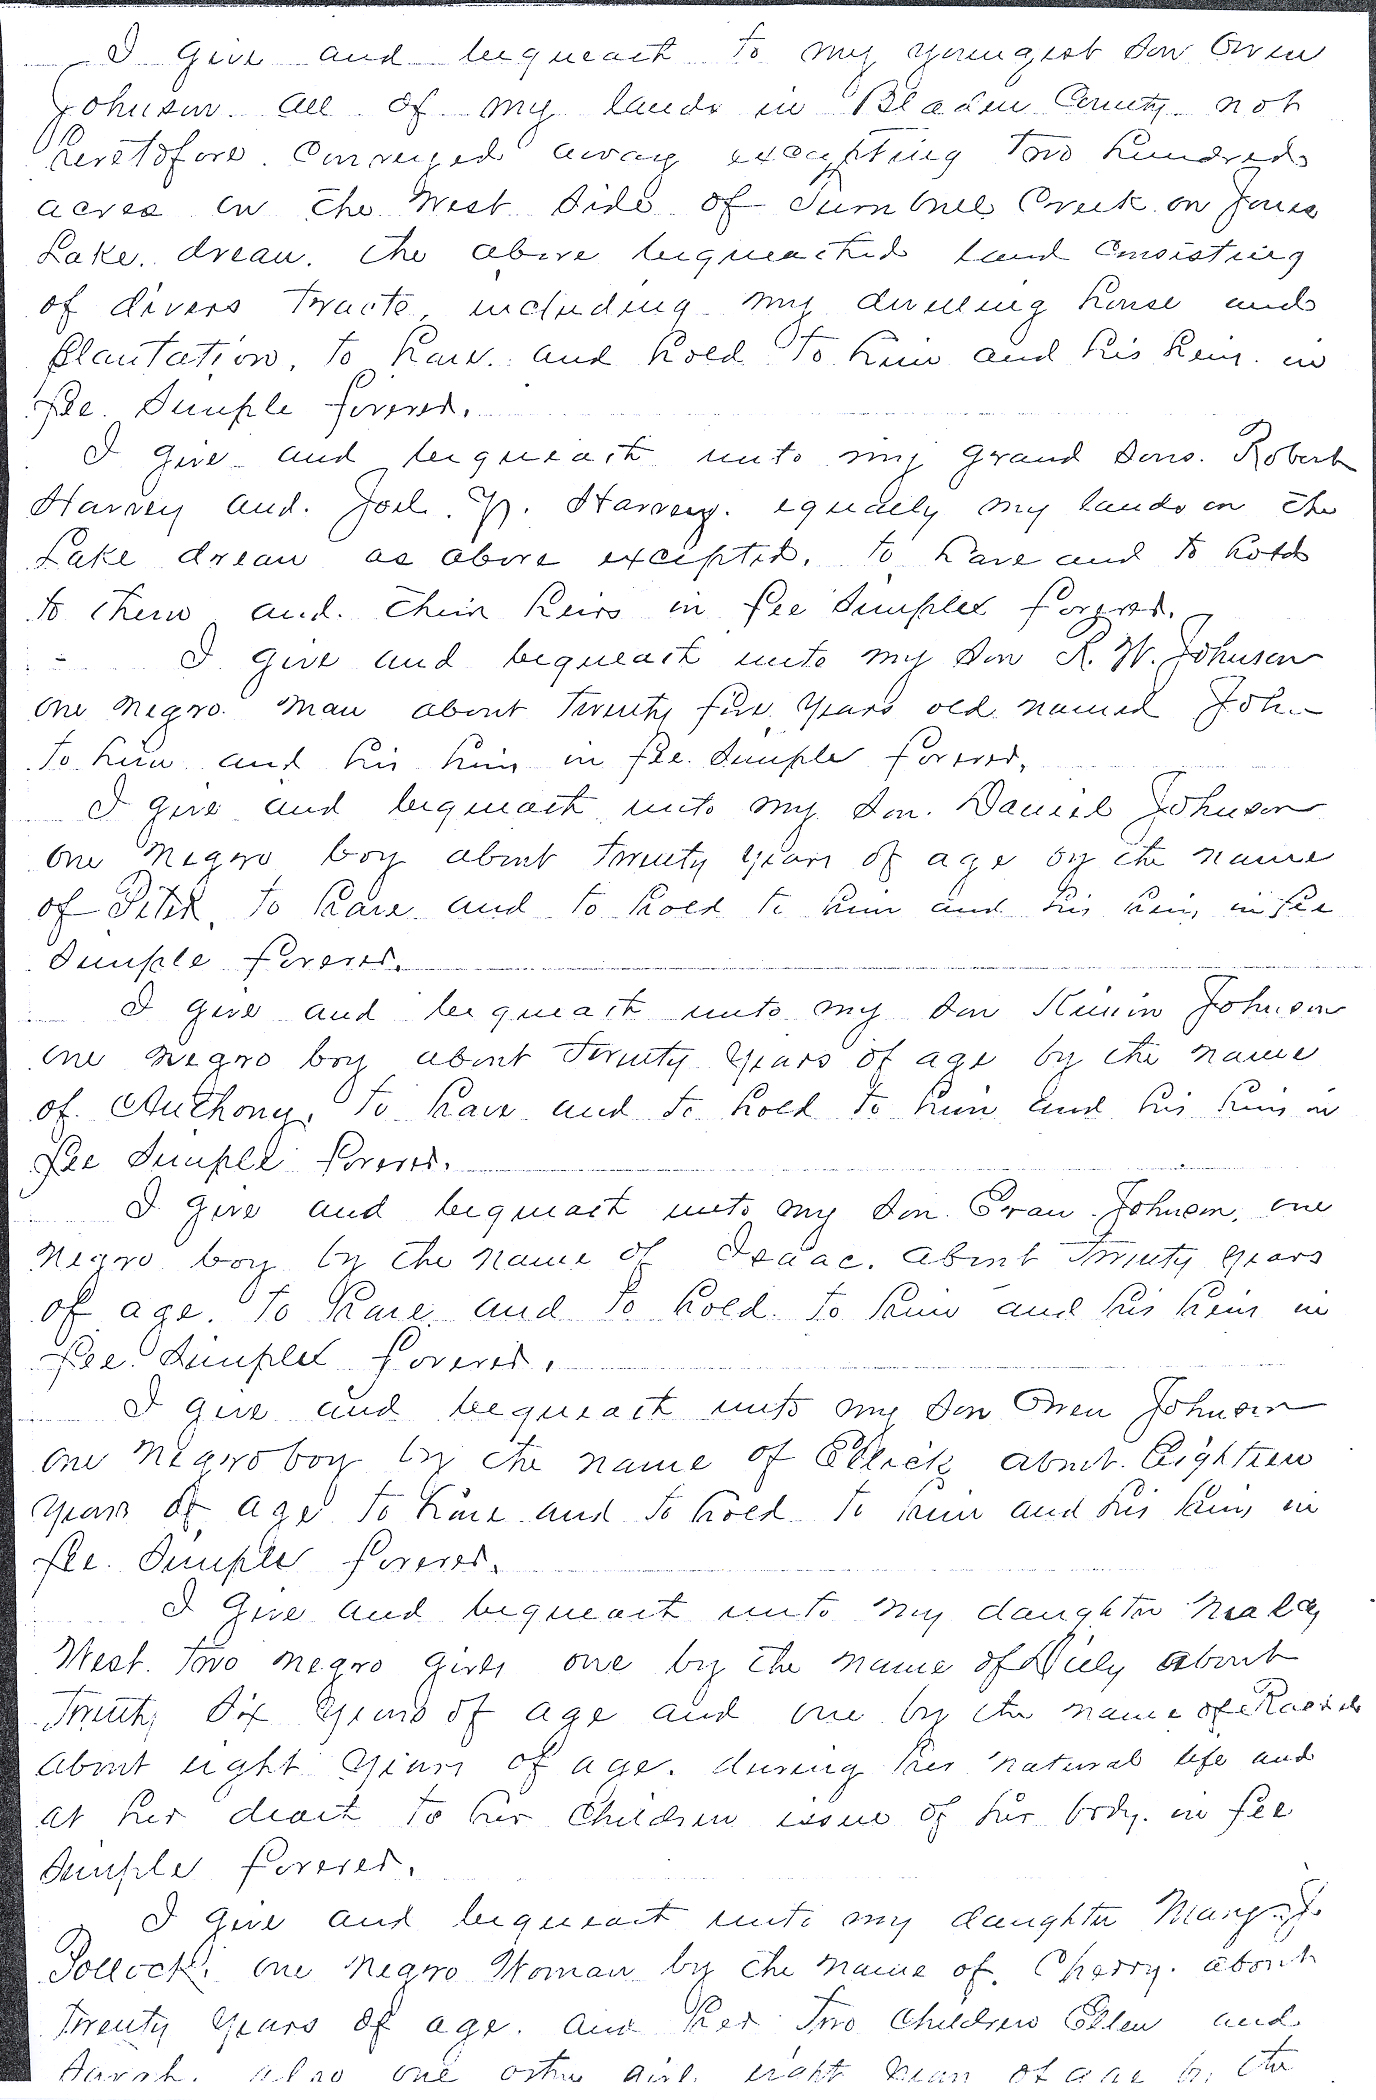 I give and bequeath to my youngest son Owen
Johnson all of my lands in Bladen County not
heretofore conveyed away excepting two hundred
acres on the West Side of Turnbull Creek on Jones
Lake drean. the above bequeathed land consisting
of divers tracts, including my dwelling house and
plantation, to have and hold to him and his heirs in
fee Simple forever.
I give and bequeath unto my grand sons Robert
Harvey and Joel Y. Harvey equally my lands on the
Lake drean as above excepted, to have and to hold
to them and their heirs in fee Simple forever.
I give and bequeath unto my son R. W. Johnson
one negro man about twenty five years old named John
to him and his heirs in fee Simple forever,
I give and bequeath unto my son Daniel Johnson
one negro boy about twenty years of age by the name
of Peter, to have and to hold to him and his heirs in fee
Simple forever.
I give and bequeath unto my son Johnson
one negro boy about twenty years of age by the name
of Anthony, to have and to hold to him and his heirs in
fee Simple forever.
I give and bequeath unto my son Evan Johnson, one
negro boy by the name of Isaac, about twenty years
of age. to have and to hold to him and his heirs in
fee Simple forever.
I give and bequeath unto my son Owen Johnson
one negro boy by the name of Ellick about Eighteen
years of age to have and to hold to him and his heirs in
fee Simple forever.
I give and bequeath unto my daughter
West two negro girls one by the name of about
twenty Six years of age and one by the name of
about eight years of age. during her natural life and
at her death to her children issue of her body. in fee
Simple forever.
I give and bequeath unto my daughter Mary J.
Pollock, one negro Woman by the name of Cherry. about
twenty years of age. and her two children Ellen and
Sarah. also one other girl eight years of age by the